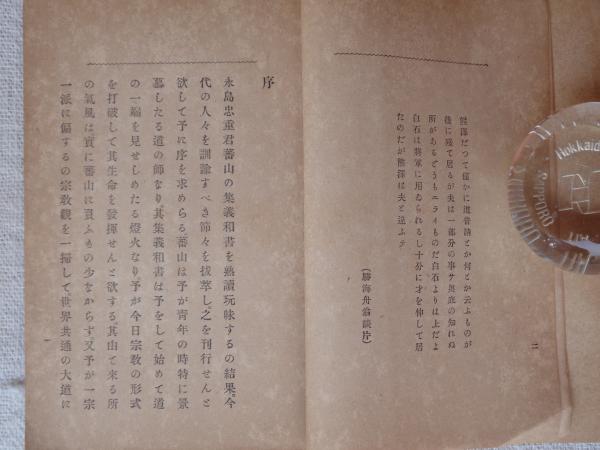 二
熊澤だつて僅かに道普請とか何とか云ふものが
後に殘て居るが夫は一部分の事サ奥底の知れぬ
所があるどうもエライものだ白石よりは上だよ
白石は將軍に用ゐられるし十分に才を伸して居
たのだが熊澤は夫と違ふテ
(勝海舟翁談片)
序
永島忠重君蕃山の集義和書を熟讀玩味するの結果。今
代の人々を訓諭すべき節々を拔萃し之を刊行せんと
欲して予に序を求めらる蕃山は予が青年の時特に景
慕したる道の師なり。其集義和書は予をして始めて道
の一端を見せしめたる燈火なり予が今日宗敎の形式
を打破して其生命を發揮せんと欲する其由て來る所
の氣風は實に蕃山に負ふもの少なからず又予が一宗
一派に偏するの宗敎觀を一掃して世界共通の大道に
一
Hokkaido
SAPPORO